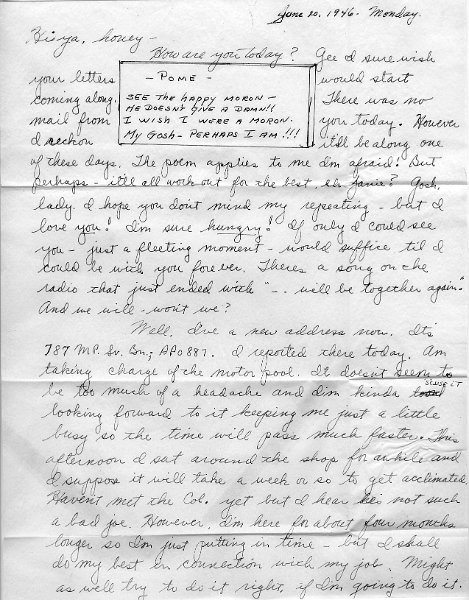 June 10, 1946. Monday.
Hi-ya, honey -
How are you today? Gee I sure wish
your letters would start
coming along. There was no
mail from you today. However
I reckon it'll be along one
- POME -
SEE THE HAPPY MORON -
HE DOESN'T GIVE A DAMN!!
I WISH I WERE A MORON.
MY GOSH - PERHAPS I AM!!!
of these days. The poem applies to me I'm afraid! But
perhaps - it'll all work out for the best, eh Janie? Gosh,
lady I hope you don't mind my repeating - but I
love you! I'm sure hungry! If only I could see
you - just a fleeting moment - would suffice til I
could be with you forever. There's a song on the
radio that just ended with "-- will be together again."
And we will - won't we?
Well, I've a new address now. It's
787 M.P. Sv. Bn; APO 887. I reported there today. Am
taking charge of the motor pool. It doesn't seem to
be too much of a headache and I'm kinda
looking forward to it keeping me just a little
busy so the time will pass much faster. This
afternoon I sat around the shop for awhile and
I suppose it will take a week or so to get acclimated.
Haven't met the Col. yet but I hear he's not such
a bad joe. However, I'm here for about four months
longer so I'm just putting in time - but I shall
do my best in connection with my job. Might
as well try to do it right, if I'm going to do it.